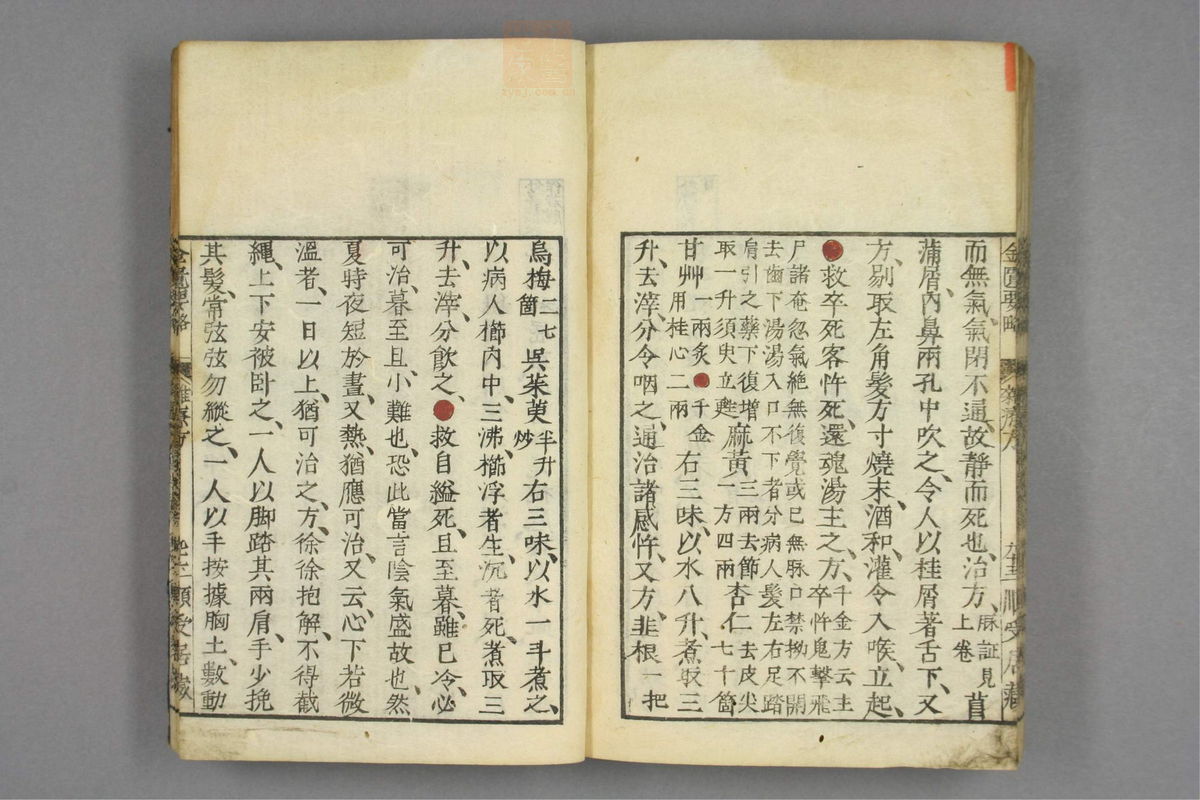 而無氣氣閉不通故靜而死也治方脉証見上卷菖
蒲屑內鼻兩孔中吹之令人以桂屑著舌下又
方剔取左角髮方寸燒末酒和灌令入喉立起
救卒死客忤死還魂湯主之方千金方云主卒忤鬼擊飛
尸諸奄忽氣絕無復覺或已無脉口禁拗不開
去齒下湯湯入口不下者分病人髮左右足踏
肩引之藥下復增取一升須臾立甦麻黃三兩去節一方四兩杏仁去皮尖七十箇
甘艸一兩炙千金用桂心二兩右三味以水八升煮取三
升去滓分令咽之通治諸感忤又方韭根一把
烏梅二七箇吳茱萸半升炒右三味以水一斗煮之
以病人櫛內中三沸櫛浮者生沉者死煮取三
升去滓分飲之救自縊死且至暮雖已冷必
可治暮至且小難也恐此當言陰氣盛故也然
夏時夜短於晝又熱猶應可治又云心下若微
溫者一日以上猶可治之方徐徐抱解不得截
繩上下安被臥之一人以脚踏其兩肩手少挽
其髮常弦弦勿縱之一人以手按據胸上數動
金匱要略
雜療方
順受居藏